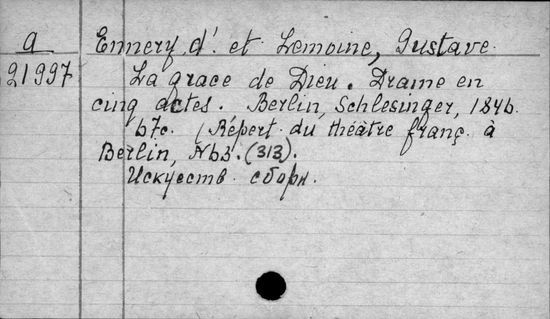 a
21997
Ennery, d'. et Lemoine, Gustave.
La grace de Dieu. Drame en
cinq actes. Berlin, Schlesinger, 1846.
67c. (Répert. du théâtre franç. à
Berlin, №3. (313).
Искусств. сборн.